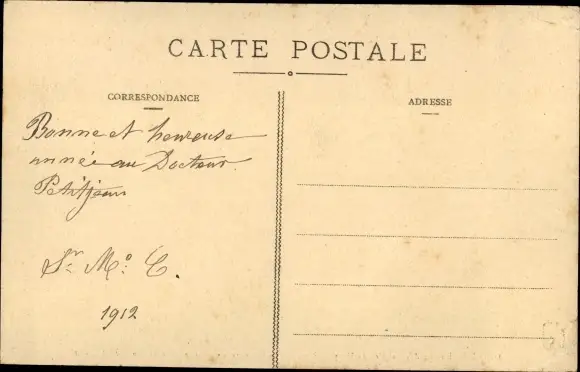 CARTE POSTALE
CORRESPONDANCE
ADRESSE
Bonne et heureuse
année au Docteur
Petitjean
Sr Mo C.
1912